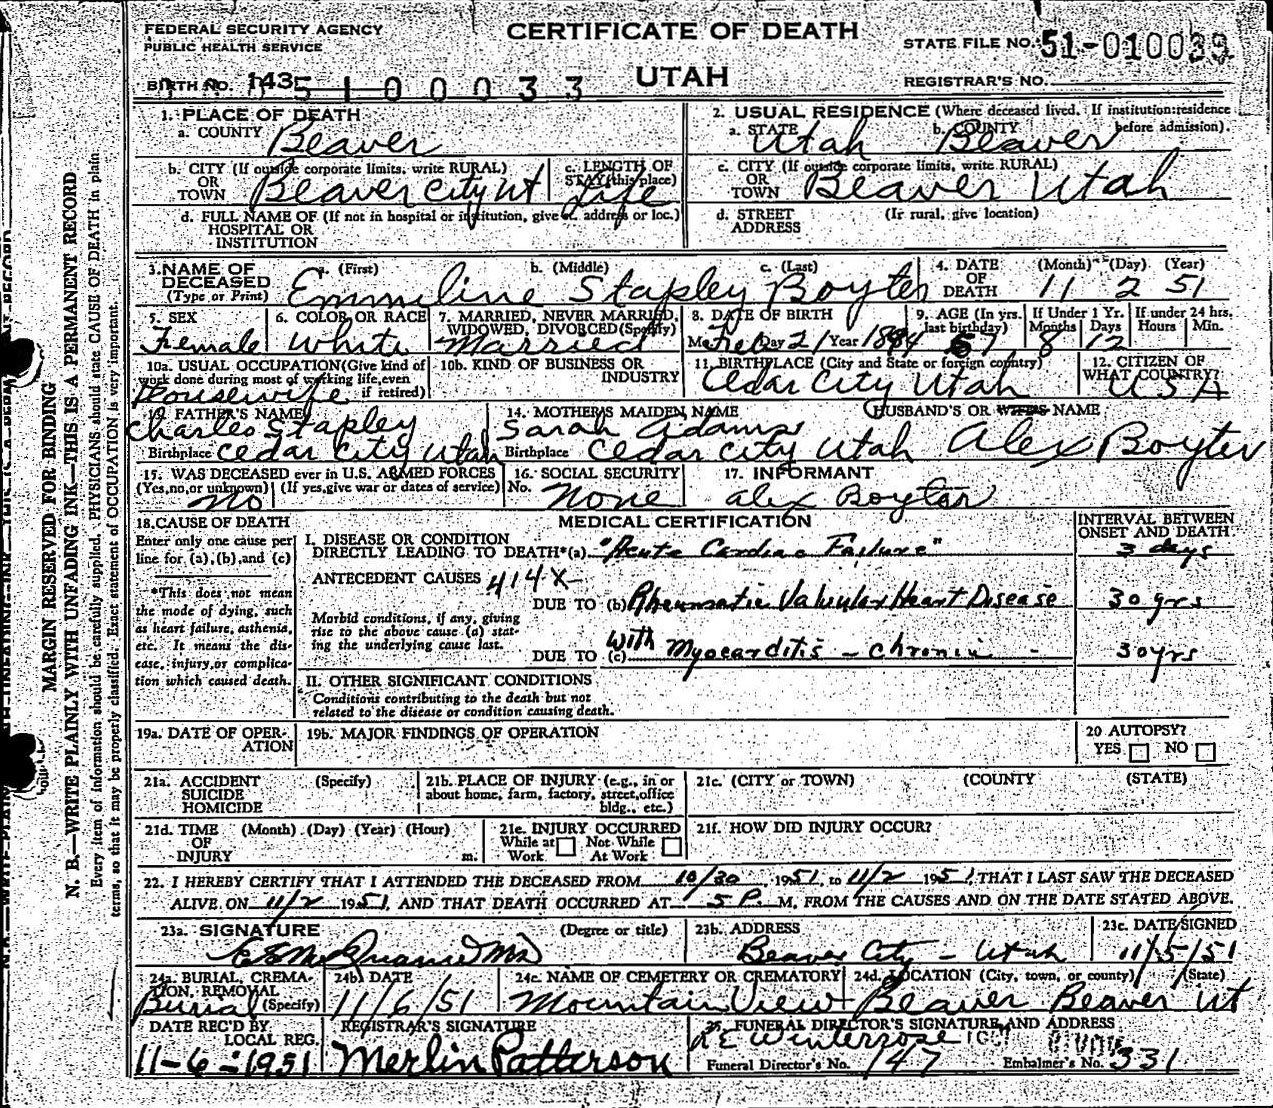 FEDERAL SECURITY AGENCY
PUBLIC HEALTH SERVICE
CERTIFICATE OF DEATH
UTAH
STATE FILE NO. 51-010039
BIRTH NO. 143 5 1 0 0 0 3 3
REGISTRAR'S NO.
1. PLACE OF DEATH
a. COUNTY Beaver
2. USUAL RESIDENCE (Where deceased lived. If institution: residence before admission).
a. STATE Utah b. COUNTY Beaver
b. CITY (If outside corporate limits, write RURAL) OR TOWN Beaver City Ut
c. LENGTH OF STAY (this place) Life
c. CITY (If outside corporate limits, write RURAL) OR TOWN Beaver Utah
d. FULL NAME OF (If not in hospital or institution, give st. address or loc.) HOSPITAL OR INSTITUTION
d. STREET ADDRESS (If rural, give location)
3. NAME OF DECEASED (Type or Print)
a. (First) b. (Middle) c. (Last)
Emmeline Stapley Boyter
4. DATE OF DEATH (Month) (Day) (Year)
11 2 51
5. SEX Female
6. COLOR OR RACE White
7. MARRIED, NEVER MARRIED, WIDOWED, DIVORCED (Specify) Married
8. DATE OF BIRTH
Mo Feb Day 21 Year 1884
9. AGE (In yrs. last birthday) 67
If Under 1 Yr. Months 8 Days 12
If under 24 hrs. Hours Min.
10a. USUAL OCCUPATION (Give kind of work done during most of working life, even if retired) Housewife
10b. KIND OF BUSINESS OR INDUSTRY
11. BIRTHPLACE (City and State or foreign country) Cedar City Utah
12. CITIZEN OF WHAT COUNTRY? USA
13. FATHER'S NAME Charles Stapley
Birthplace Cedar City Utah
14. MOTHER'S MAIDEN NAME Sarah Adams
Birthplace Cedar City Utah
HUSBAND'S OR WIFE'S NAME Alex Boyter
15. WAS DECEASED ever in U.S. ARMED FORCES
(Yes, no, or unknown) (If yes, give war or dates of service)
No
16. SOCIAL SECURITY No. None
17. INFORMANT Alex Boyter
18. CAUSE OF DEATH
Enter only one cause per line for (a), (b), and (c)
*This does not mean the mode of dying, such as heart failure, asthenia, etc. It means the disease, injury, or complication which caused death.
MEDICAL CERTIFICATION
INTERVAL BETWEEN ONSET AND DEATH
I. DISEASE OR CONDITION DIRECTLY LEADING TO DEATH* (a) "Acute Cardiac Failure" 3 days
ANTECEDENT CAUSES 414X
DUE TO (b) Rheumatic Valvular Heart Disease 30 yrs
Morbid conditions, if any, giving rise to the above cause (a) stating the underlying cause last.
DUE TO (c) With Myocarditis - chronic - 30 yrs
II. OTHER SIGNIFICANT CONDITIONS
Conditions contributing to the death but not related to the disease or condition causing death.
19a. DATE OF OPERATION
19b. MAJOR FINDINGS OF OPERATION
20 AUTOPSY? YES NO
21a. ACCIDENT SUICIDE HOMICIDE (Specify)
21b. PLACE OF INJURY (e.g., in or about home, farm, factory, street, office bldg., etc.)
21c. (CITY or TOWN) (COUNTY) (STATE)
21d. TIME OF INJURY (Month) (Day) (Year) (Hour) m.
21e. INJURY OCCURRED While at Work Not While At Work
21f. HOW DID INJURY OCCUR?
22. I HEREBY CERTIFY THAT I ATTENDED THE DECEASED FROM 10/30 1951, to 11/2 1951, THAT I LAST SAW THE DECEASED
ALIVE ON 11/2 1951, AND THAT DEATH OCCURRED AT 5 P. M, FROM THE CAUSES AND ON THE DATE STATED ABOVE.
23a. SIGNATURE (Degree or title)
MD
23b. ADDRESS Beaver City - Utah
23c. DATE SIGNED 11/5/51
24a. BURIAL, CREMATION, REMOVAL (Specify) Burial
24b DATE 11/6/51
24c. NAME OF CEMETERY OR CREMATORY Mountain View
24d. LOCATION (City, town, or county) (State) Beaver Beaver Ut
DATE REC'D BY LOCAL REG. 11-6-1951
REGISTRAR'S SIGNATURE Merlin Patterson
25. FUNERAL DIRECTOR'S SIGNATURE AND ADDRESS
Winterrose
Funeral Director's No. 147 Embalmer's No. 331
MARGIN RESERVED FOR BINDING
N. B.—WRITE PLAINLY WITH UNFADING INK—THIS IS A PERMANENT RECORD
Every item of information should be carefully supplied. PHYSICIANS should state CAUSE OF DEATH in plain
terms, so that it may be properly classified. Exact statement of OCCUPATION is very important.